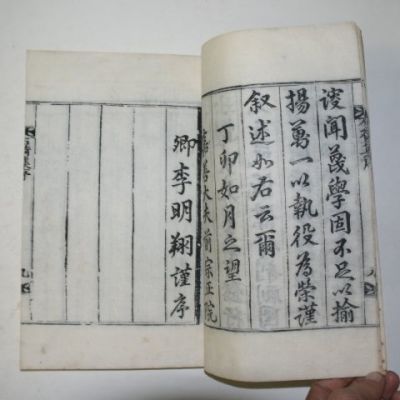 謏聞蔑學固不足以揄
揚萬一以執役為榮謹
叙述如右云爾
丁卯如月之望
嘉善大夫前宗正院
卿李明翔謹序